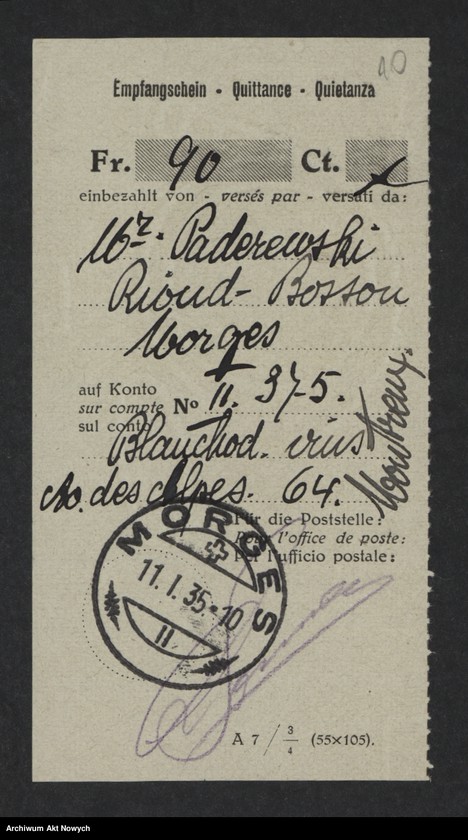 10
Empfangschein - Quittance - Quietanza
Fr. 90 Ct.
einbezahlt von - versés par - versati da:
Mr. Paderewski
Rioud-Bosson
Morges
auf Konto
sur compte
sul conto
No II. 375.
Blanchod. vins
Av. des Alpes. 64.
Montreux.
Für die Poststelle:
Pour l'office de poste:
Per l'ufficio postale:
MORGES
11.I.35.-10
A 7 / 3/4 (55×105).
Archiwum Akt Nowych